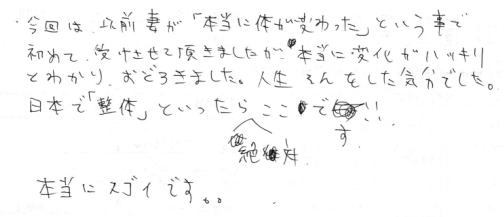 ・今回は、以前妻が「本当に体が変わった」という事で
初めて、受けさせて頂きましたが、本当に変化がハッキリ
とわかり、おどろきました。人生そんをした気分でした。
日本で「整体」といったらここで!!
絶対 す
本当にスゴイです。。